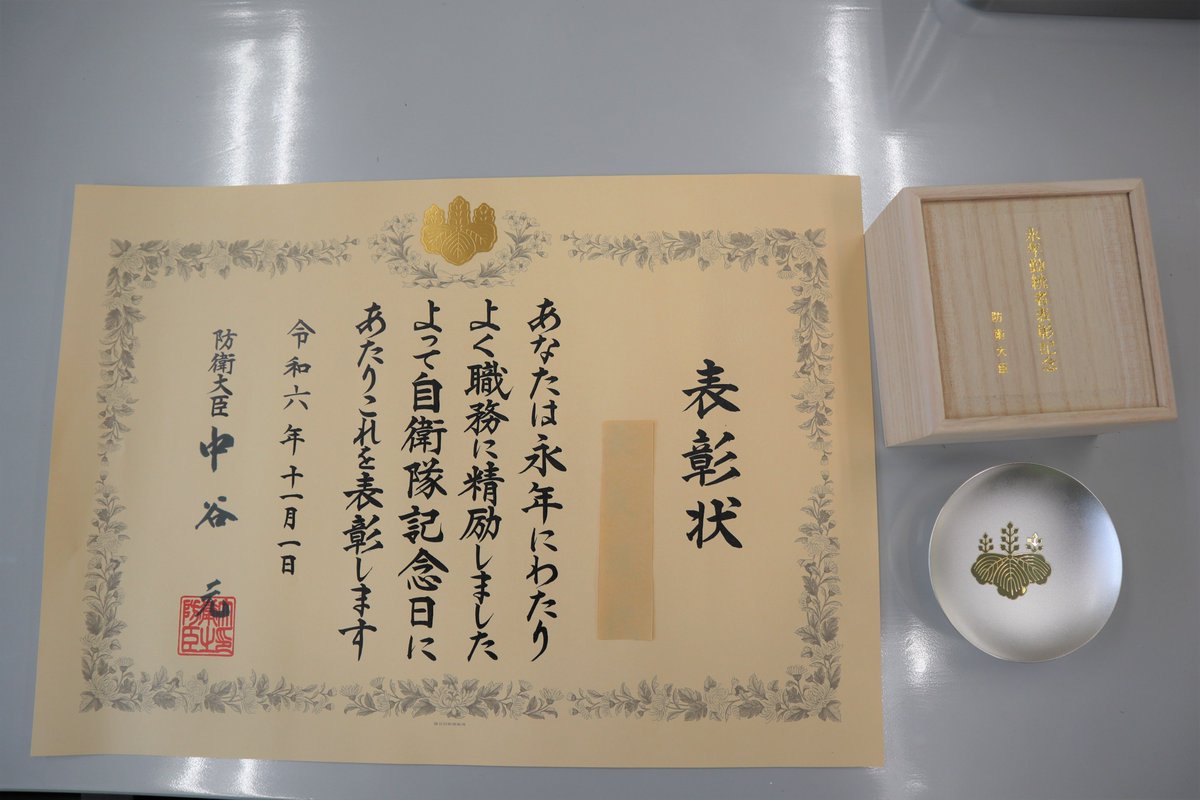 表彰状
あなたは永年にわたり
よく職務に精励しました
よって自衛隊記念日に
あたりこれを表彰します
令和六年十一月一日
防衛大臣 中谷 元
永年勤続者表彰記念
防衛大臣